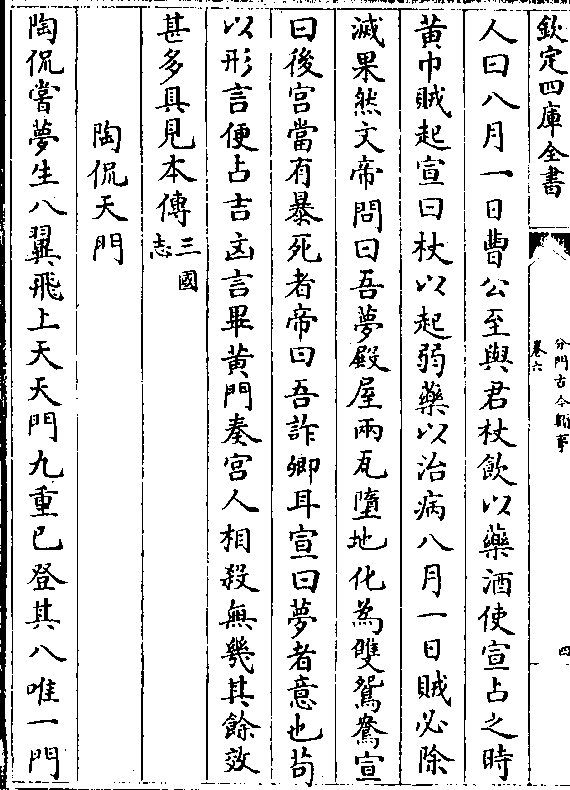 欽定四庫全書
分門古今類事
卷六
四
人曰八月一日曹公至與君杖飲以藥酒使宣占之時
黃巾賊起宣曰杖以起弱藥以治病八月一日賊必除
滅果然文帝問曰吾夢殿屋兩瓦墮地化為雙鴛鴦宣
曰後宮當有暴死者帝曰吾詐卿耳宣曰夢者意也茍
以形言便占吉凶言畢黃門奏宮人相殺無幾其餘效
甚多具見本傳三國志
陶侃天門
陶侃嘗夢生八翼飛上天天門九重已登其八唯一門